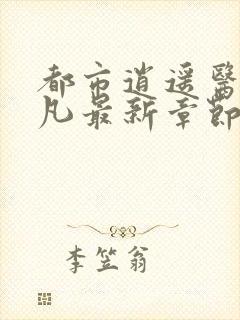 都市逍遥醫
凡最新章節
李笠翁